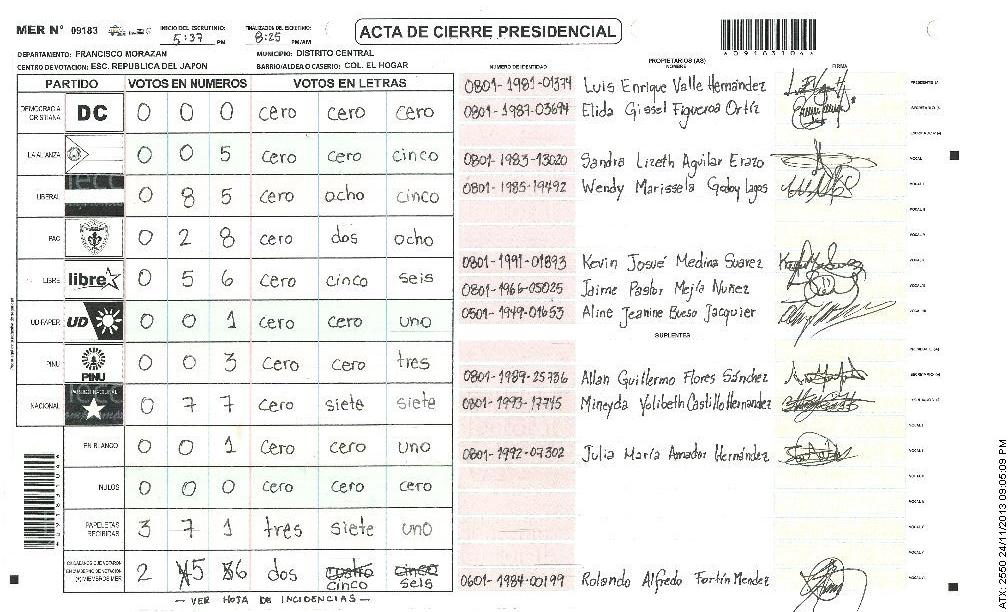 MER N° 09183 INICIO DEL ESCRUTINIO: 5:37 PM FINALIZACION DEL ESCRUTINIO: 8:25 PM/AM
ACTA DE CIERRE PRESIDENCIAL
DEPARTAMENTO: FRANCISCO MORAZAN MUNICIPIO: DISTRITO CENTRAL
CENTRO DE VOTACION: ESC. REPUBLICA DEL JAPON BARRIO/ALDEA O CASERIO: COL. EL HOGAR
PARTIDO VOTOS EN NUMEROS VOTOS EN LETRAS
DEMOCRACIA CRISTIANA DC 0 0 0 cero cero cero
LA ALIANZA 0 0 5 cero cero cinco
LIBERAL 0 8 5 cero ocho cinco
PAC 0 2 8 cero dos ocho
LIBRE libre 0 5 6 cero cinco seis
UD FAPER UD 0 0 1 cero cero uno
PINU PINU 0 0 3 cero cero tres
NACIONAL 0 7 7 cero siete siete
EN BLANCO 0 0 1 cero cero uno
NULOS 0 0 0 cero cero cero
PAPELETAS RECIBIDAS 3 7 1 tres siete uno
2 5 6 dos cinco seis
- VER HOJA DE INCIDENCIAS -
NUMERO DE IDENTIDAD PROPIETARIOS (AS) NOMBRE FIRMA
0801-1981-01374 Luis Enrique Valle Hernández
0801-1987-03694 Elida Gissel Figueroa Ortíz
0801-1983-13020 Sandra Lizeth Aguilar Erazo
0801-1985-19492 Wendy Marissela Godoy Lagos
0801-1991-01893 Kevin Josué Medina Suarez
0801-1966-05025 Jaime Pastor Mejía Nuñez
0501-1949-01653 Aline Jeanine Bueso Jacquier
SUPLENTES
0801-1989-25736 Allan Guillermo Flores Sánchez
0801-1993-17745 Mineyda Yolibeth Castillo Hernandez
0801-1992-07302 Julia María Amador Hernández
0601-1984-00199 Rolando Alfredo Fortín Mendez
ATX: 2550 24/11/2013 09:05:09 PM